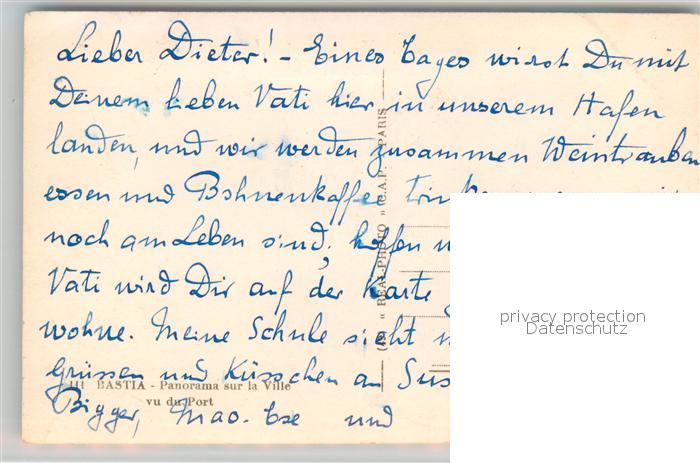 Lieber Dieter! - Eines Tages wirst Du mit
Deinem lieben Vati hier in unserem Hafen
landen, und wir werden zusammen Weintrauben
essen und Bohnenkaffee
noch am Leben sind, hoffen
Vati wird Dir auf der Karte
wohne. Meine Schule sieht
Grüssen und Küsschen an Sus
Bigger, und
111 BASTIA - Panorama sur la Ville
vu du Port
« REAL-PHOTO » C.A.P. PARIS
privacy protection
Datenschutz